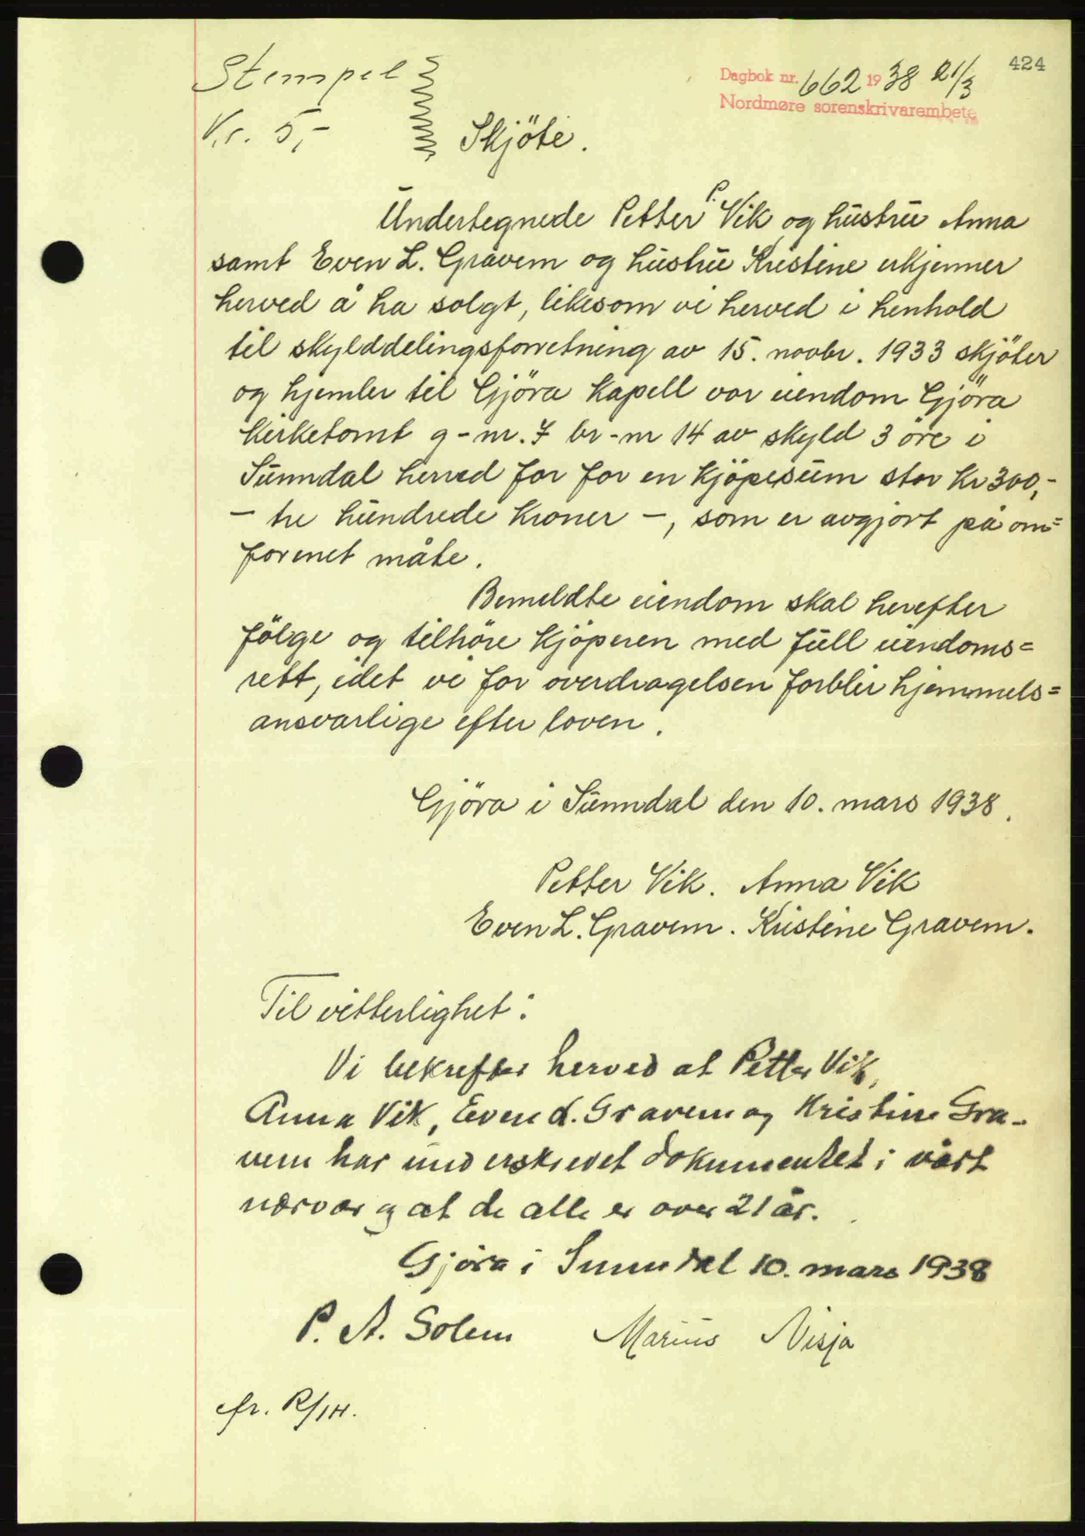 424
Dagbok nr. 662 1938 21/3
Nordmøre sorenskrivarembete
Stempel
Kr. 5,-
Skjöte.
Undertegnede Petter P. Vik og hustru Anna
samt Even L. Gravem og hustru Kristine erkjenner
herved å ha solgt, likesom vi herved i henhold
til skylddelingsforretning av 15. novbr. 1933 skjöter
og hjemler til Gjöra Kapell vor eiendom Gjöra
kirketomt g-nr. 7 br-nr 14 av skyld 3 öre i
Sunndal herred for for en kjöpesum stor kr 300,-
- tre hundrede kroner -, som er avgjort på om=
forenet måte.
Bemeldte eiendom skal herefter
fölge og tilhöre kjöperen med full eiendoms=
rett, idet vi for overdragelsen forblir hjemmels=
ansvarlige efter loven.
Gjöra i Sunndal den 10. mars 1938.
Petter Vik. Anna Vik
Even L. Gravem. Kristine Gravem.
Til vitterlighet:
Vi bekrefter herved at Petter Vik,
Anna Vik, Even L. Gravem og Kristine Gra-
vem har underskrevet dokumentet i vårt
nærvær og at de alle er over 21 år.
Gjöra i Sunndal 10. mars 1938
P. A. Solem Marius Nisja